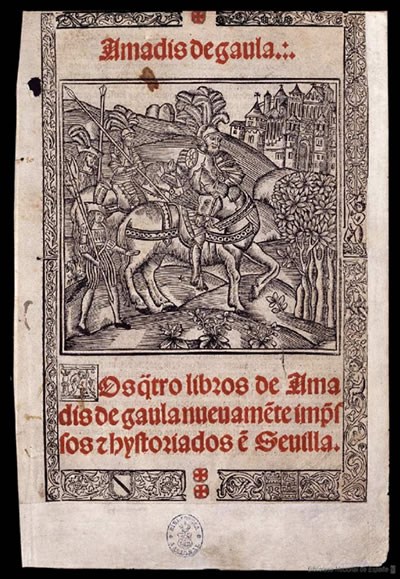 Amadis de gaula.:.
Los q̃tro libros de Ama
dis de gaula nueuamẽte imp̃s
sos ⁊ hystoriados ẽ Seuilla.